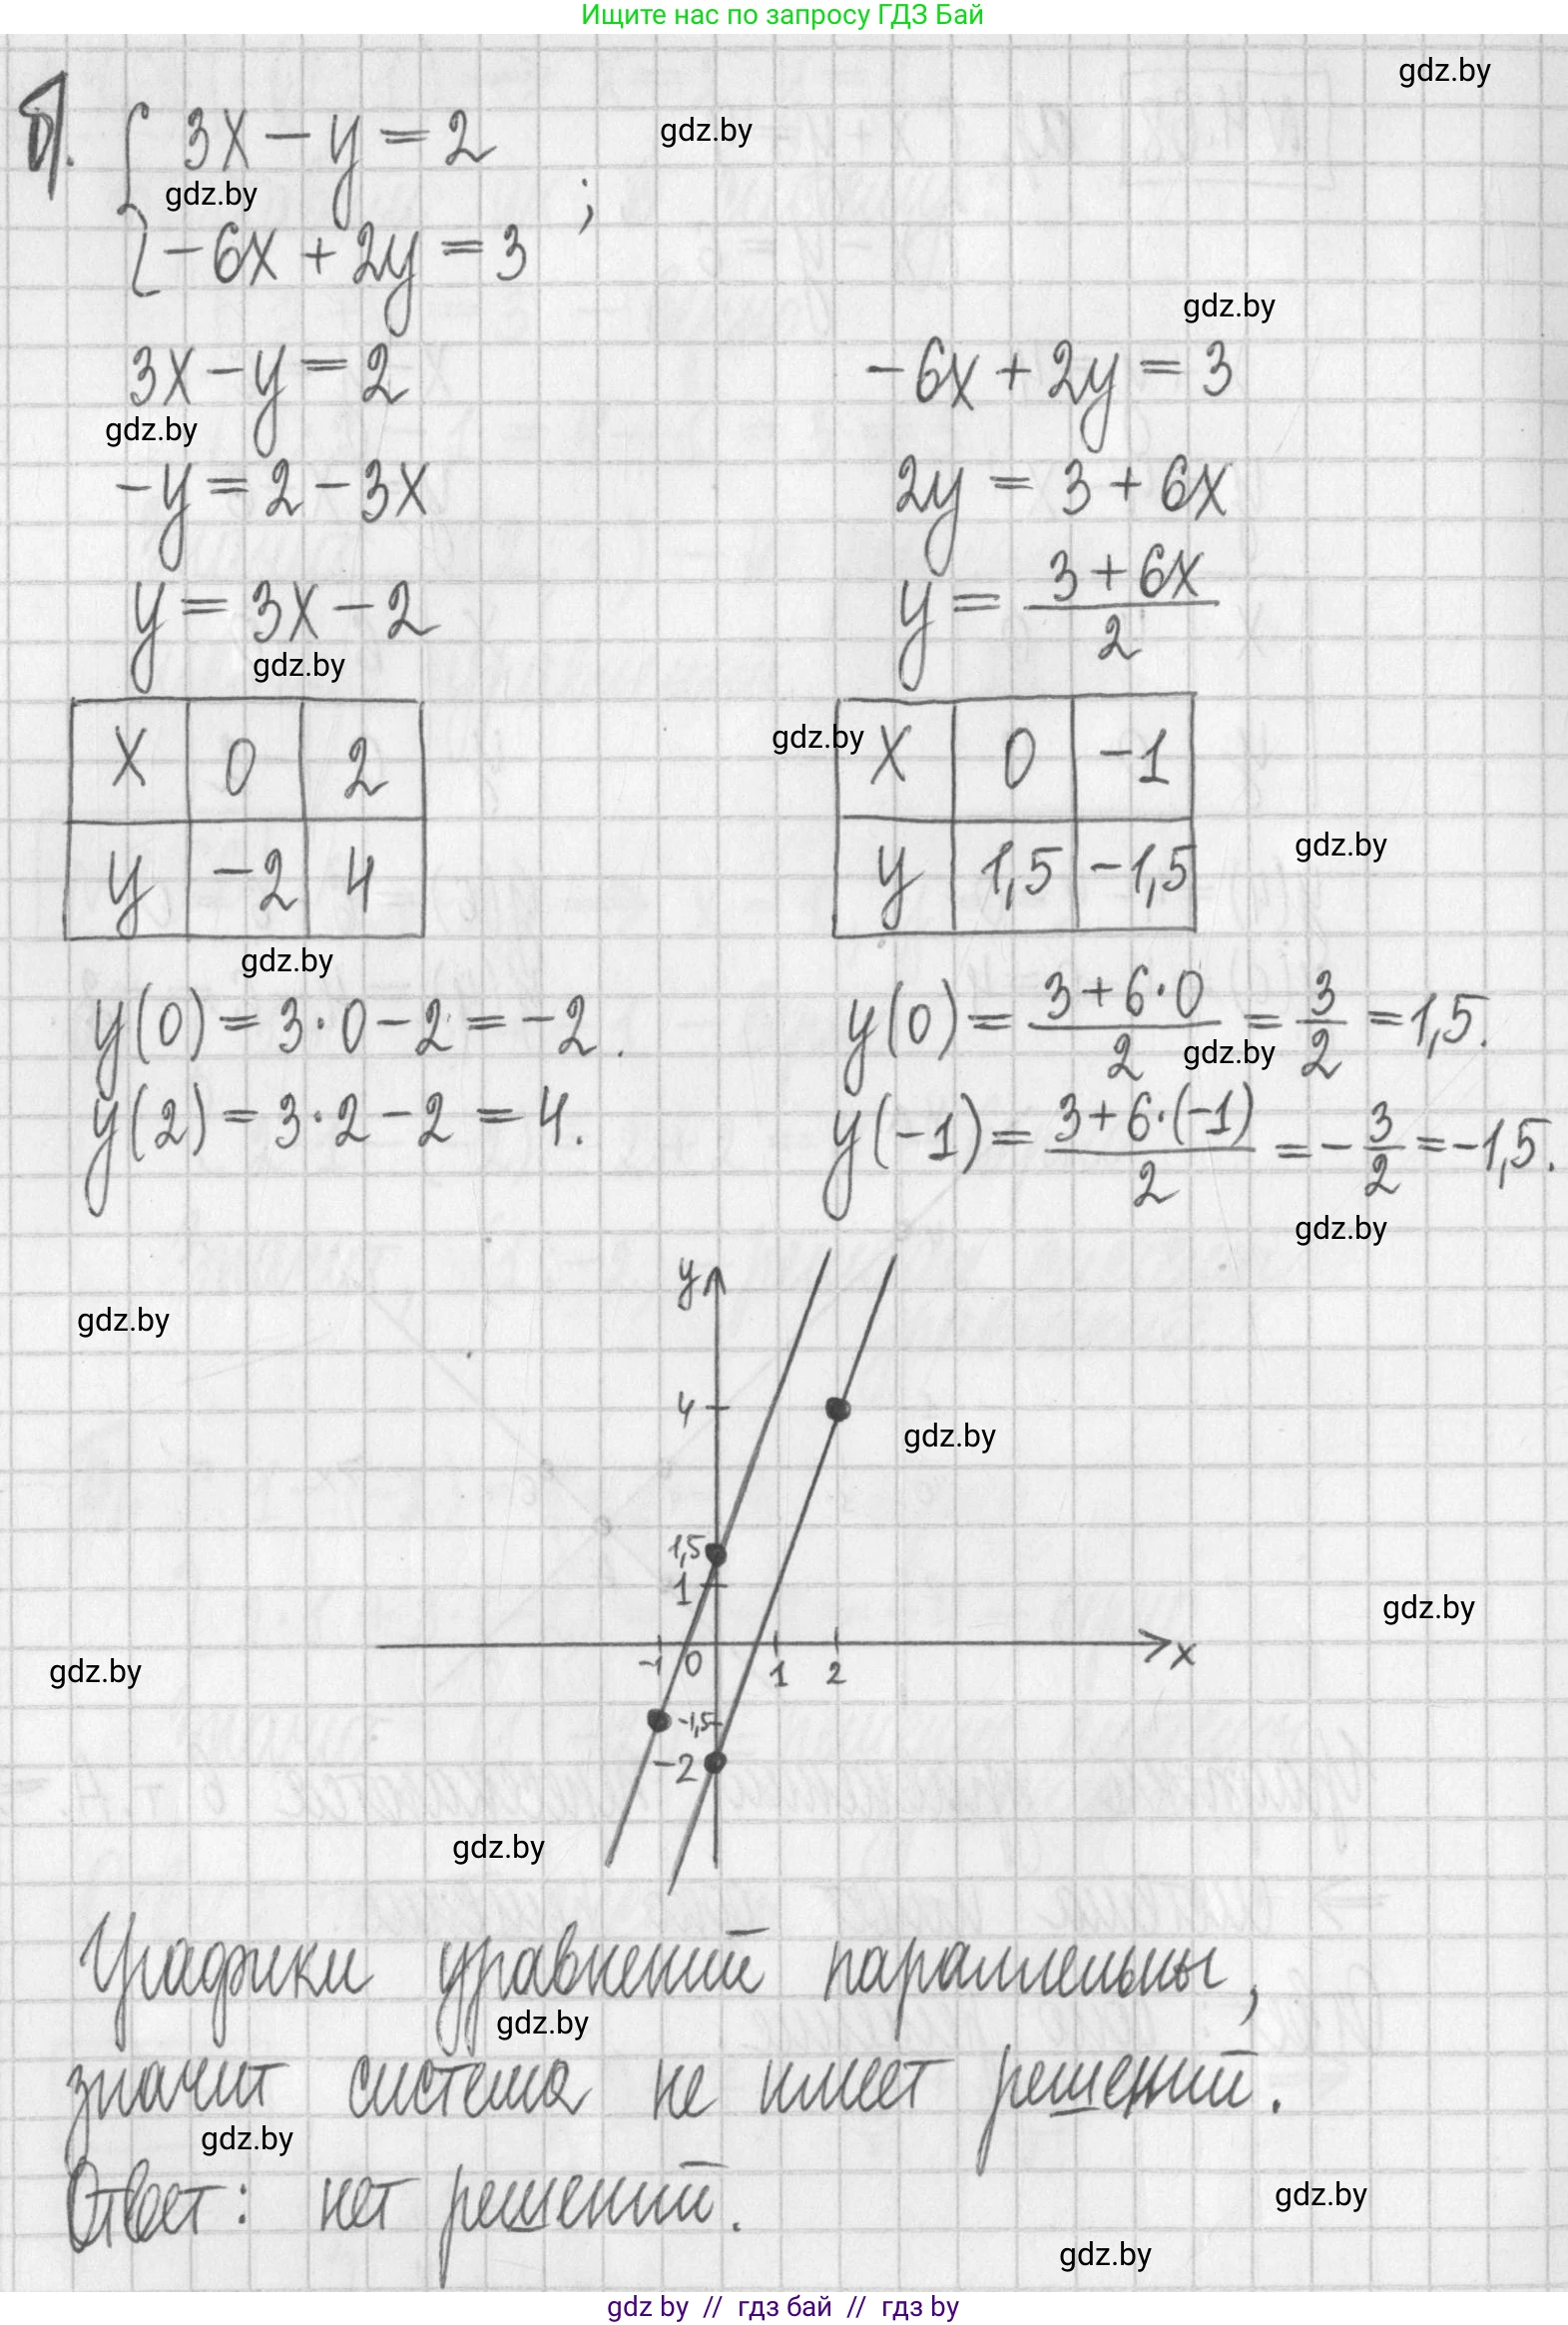 Ищите нас по запросу ГДЗ Бай
gdz.by
б). { 3x - y = 2
gdz.by
gdz.by
{ -6x + 2y = 3 ;
gdz.by
3x - y = 2
-6x + 2y = 3
gdz.by
-y = 2 - 3x
2y = 3 + 6x
y = 3x - 2
y = (3 + 6x)/2
gdz.by
x 0 2
gdz.by
x 0 -1
y -2 4
gdz.by
y 1,5 -1,5
gdz.by
y(0) = 3·0 - 2 = -2.
y(0) = (3+6·0)/2 = 3/2 = 1,5.
gdz.by
y(2) = 3·2 - 2 = 4.
y(-1) = (3+6·(-1))/2 = -3/2 = -1,5.
gdz.by
y
gdz.by
4
gdz.by
1,5
1
gdz.by
-1 0 1 2 x
gdz.by
-1,5
-2
gdz.by
Графики уравнений параллельны,
gdz.by
значит система не имеет решений.
gdz.by
Ответ: нет решений.
gdz.by
gdz.by
gdz by // гдз бай // гдз by